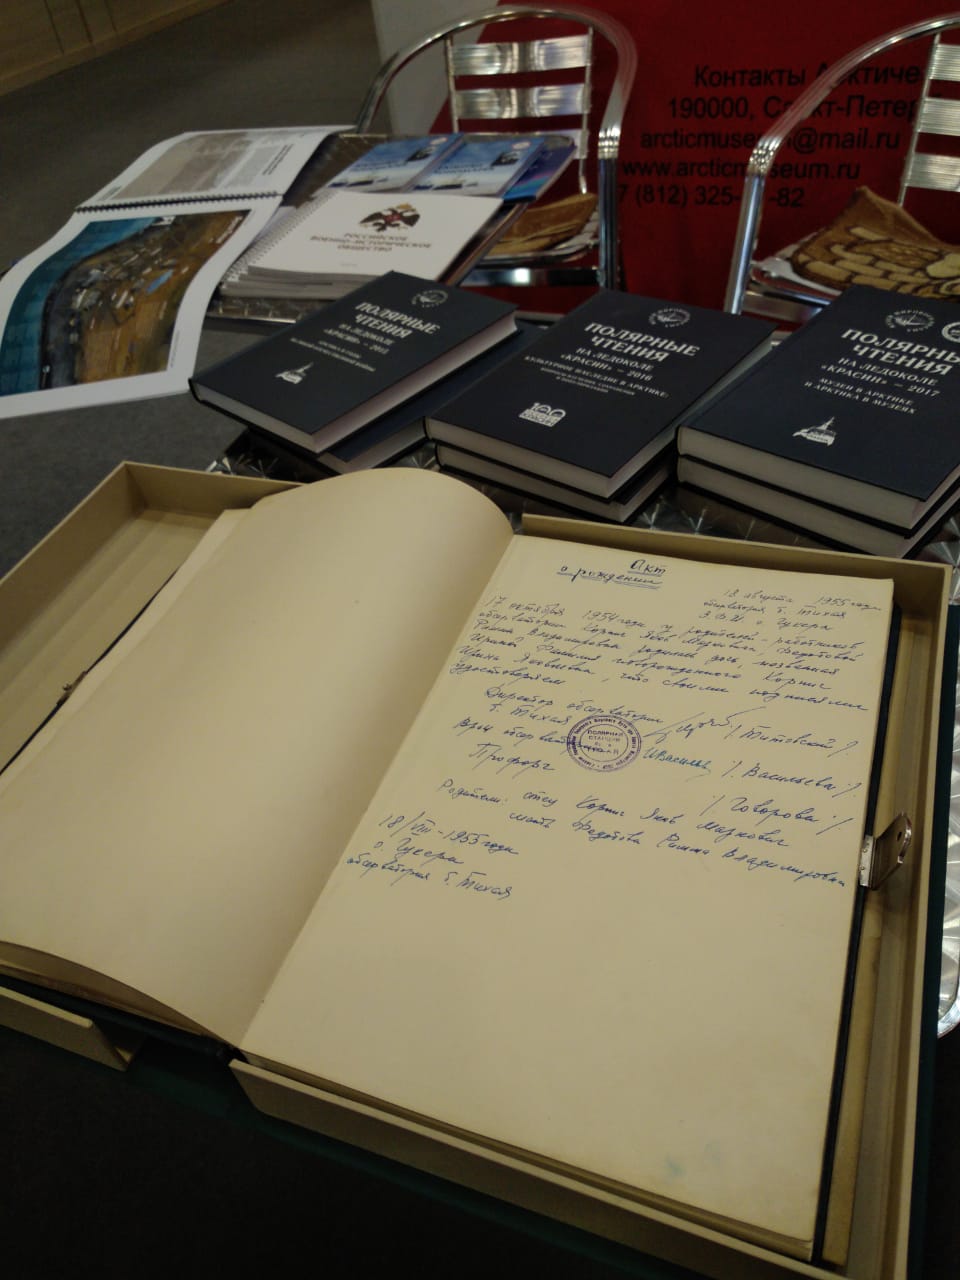 Контакты Арктиче
190000, Санкт-Петер
arcticmuseum@mail.ru
www.arcticmuseum.ru
7 (812) 325- -82
РОССИЙСКОЕ
ВОЕННО-ИСТОРИЧЕСКОЕ
ОБЩЕСТВО
ПОЛЯРНЫЕ
ЧТЕНИЯ
НА ЛЕДОКОЛЕ
«КРАСИН» – 2015
ПОЛЯРНЫЕ
ЧТЕНИЯ
НА ЛЕДОКОЛЕ
«КРАСИН» – 2016
КУЛЬТУРНОЕ НАСЛЕДИЕ В АРКТИКЕ:
100
ПОЛЯРНЫЕ
ЧТЕНИЯ
НА ЛЕДОКОЛЕ
«КРАСИН» – 2017
МУЗЕИ В АРКТИКЕ
И АРКТИКА В МУЗЕЯХ
Акт
о рождении
18 августа 1955 года
обсерватория б. Тихая
З.Ф.И. о. Гукера
17 октября 1954 года у родителей - работников
обсерватории Корниг Яков Маркович, Федотовой
Римма Владимировна родилась дочь, названная
Ириной. Фамилия новорожденного Корниг
Ирина Яковлевна, что своими подписями
удостоверяем
Директор обсерватории
б. Тихая /Титовский/
Врач обсерват ИВасильев /Васильева/
ПОЛЯРНАЯ
СТАНЦИЯ
Профорг /Говорова/
Родители: отец Корниг Яков Маркович
мать Федотова Римма Владимировна
18/VIII-1955 года
о. Гукера
обсерватория б. Тихая